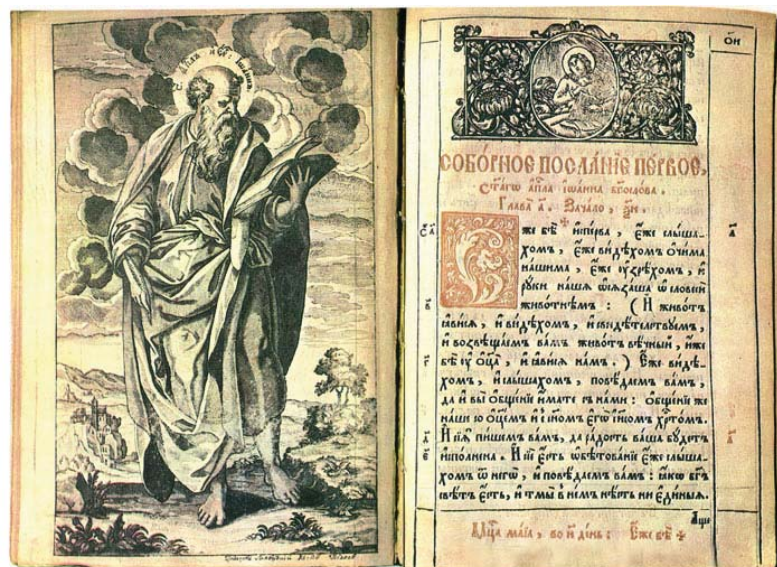 С. апⷭ҇лъ и еѵⷢ҇: Іѡаннъ
ѻ҃и
СОБО́РНОЕ ПОСЛА́НЇЕ ПЕ́РВОЕ,
ст҃а́гѡ ап҇ⷭ҇ла і҆ѡа́нна бг҃осло́ва.
Глава̀ а҃. Зача́ло, ѯ҃и.
же бѣ̀ и҆спе́рва, є҆́же слы́ша-
хомъ, є҆́же ви́дѣхомъ ѻ҆чи́ма
на́шима, є҆́же ᲂу҆зрѣ́хомъ, и҆
рꙋ́ки на́шѧ ѡ҆сѧза́ша ѡ҆ словесѝ
живо́тнѣмъ : ( И҆ живо́тъ
ꙗ҆ви́сѧ, и҆ ви́дѣхомъ, и҆ свидѣ́телствꙋемъ,
и҆ возвѣща́емъ ва́мъ живо́тъ вѣ́чный, и҆́же
бѣ̀ ᲂу҆ ѻ҆ц҃а̀, и҆ ꙗ҆ви́сѧ на́мъ. ) Є҆́же ви́дѣ-
хомъ, и҆ слы́шахомъ, повѣ́даемъ ва́мъ,
да и҆ вы̀ ѻ҆бще́нїе и҆́мате съ на́ми : ѻ҆бще́нїе же
на́ше со ѻ҆ц҃е́мъ и҆ с̾ сн҃омъ є҆гѡ̀ і҆и҃сомъ хрⷭ҇то́мъ.
И҆ сїѧ̑ пи́шемъ ва́мъ, да ра́дость ва́ша бꙋ́детъ
и҆спо́лнена. И҆ сїѐ є҆́сть ѡ҆бѣтова́нїе є҆́же слы́ша-
хомъ ѿ негѡ̀, и҆ повѣ́даемъ ва́мъ : ꙗ҆́кѡ бг҃ъ
свѣ́тъ є҆́сть, и҆ тмы̀ в̾ не́мъ нѣ́сть ни є҆ди́ныѧ.
А҆́ще
Мц҃а ма́їа, во и҃ де́нь : Є҆́же бѣ̀